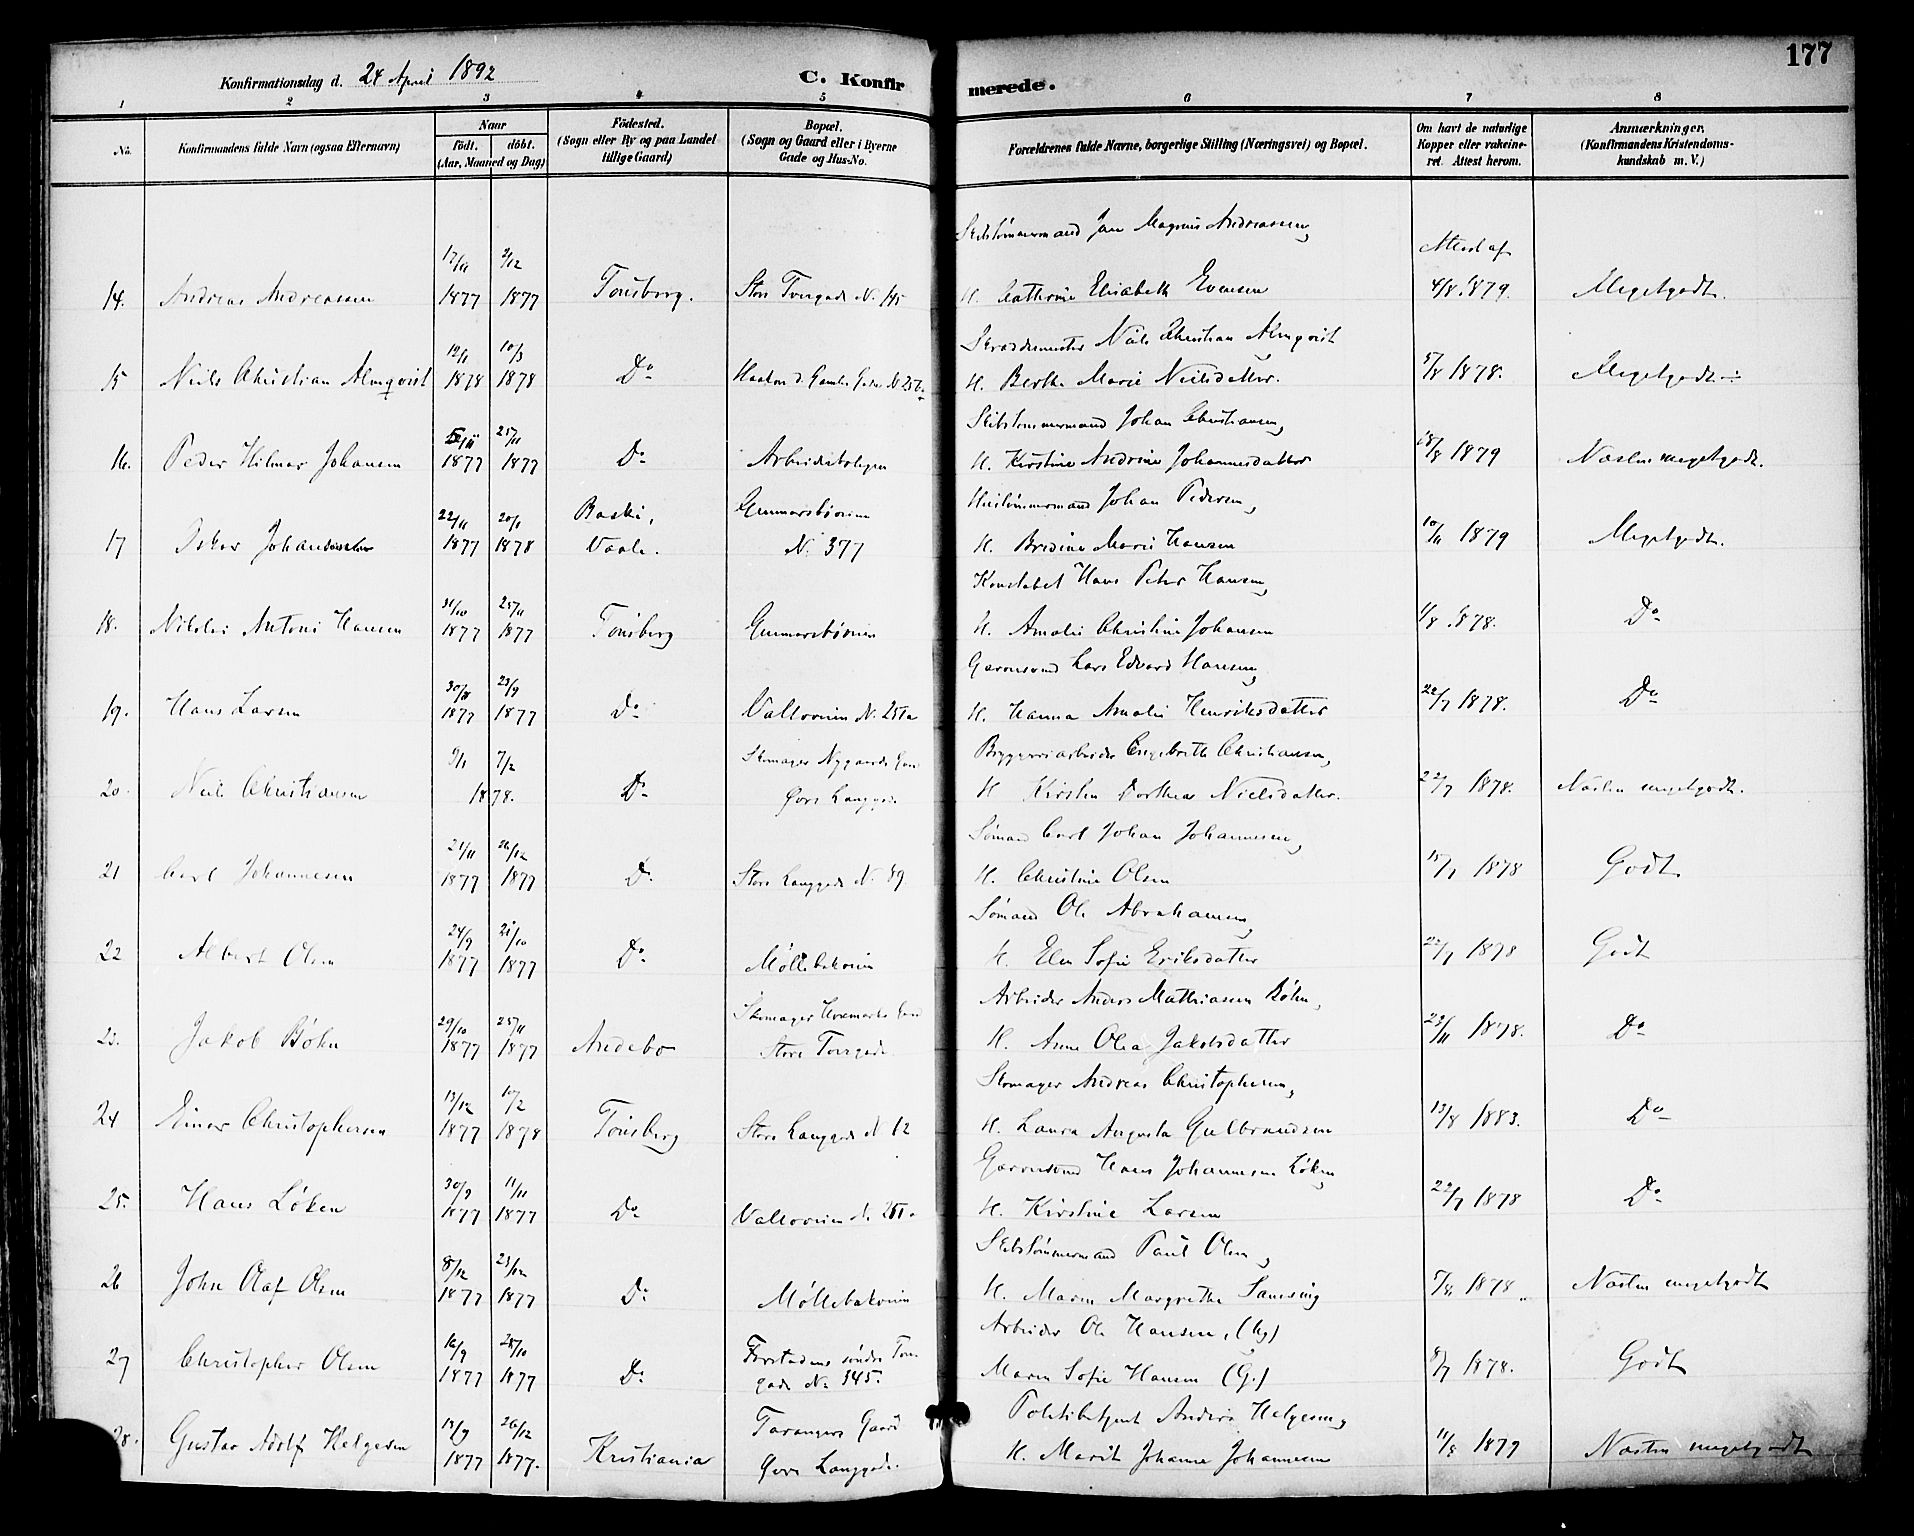 177
Konfirmationsdag d. 24 April 1892
C. Konfirmerede.
1 2 3 4 5 6 7 8
No.
Konfirmandens fulde Navn (ogsaa Efternavn)
Naar
födt. döbt.
(Aar, Maaned og Dag)
Födested.
(Sogn eller By og paa Landet
tillige Gaard)
Bopæl.
(Sogn og Gaard eller i Byerne
Gade og Hus-No.
Forældrenes fulde Navne, borgerlige Stilling (Næringsvei) og Bopæl.
Om havt de naturlige
Kopper eller vakcine-
ret. Attest herom.
Anmærkninger.
(Konfirmandens Kristendoms-
kundskab m. V.)
14. Andreas Andreassen 17/11 1877 9/12 1877 Tönsberg. Store Tvergade N. 145
Skibstömmermand Jan Magnus Andreassen,
H. Cathrine Elisabeth Evensen
Attest af
4/8 1879. Megetgodt.
15 Niels Christian Almqvist 12/1 1878 10/3 1878 Do N. 257
Skræddermester Niels Christian Almqvist
H. Berthe Marie Neilsdatter.
5/8 1878. Megetgodt ÷
16. Peder Hilmar Johansen 1877 25/11 1877 Do Arbeiderboligen
Skibstömmermand Johan Christiansen,
H. Kirstine Andrine Johannesdatter
18/8 1879 Næsten megetgodt.
17 Oskar Johansen 22/11 1877 20/1 1878 Vaale. Gunnarsbøveien
N. 377
Huustömmermand Johan Pedersen,
H. Bredine Marie Hansen
10/11 1879 Megetgodt.
18. Nikolai Antoni Hansen 31/10 1877 25/11 1877 Tönsberg Gunnarsbøveien
Konstabel Hans Peter Hansen,
H. Amalie Christine Johansen
1/8 1878. Do
19. Hans Larsen 30/8 1877 23/9 1877 Do Valloveien N. 251a
Garversvend Lars Edvard Hansen,
H. Hanna Amalie Henriksdatter
22/7 1878. Do
20. Niels Christiansen 9/1 7/2 1878. Do Skomager Nygaards Gaard
Övre Langgd.
Bryggeriarbeider Engebreth Christiansen,
H. Kirsten Dorthea Nielsdatter.
22/7 1878. Næsten megetgodt.
21 Carl Johannesen 21/11 1877 26/12 1877 Do Store Langgade N. 89
Sömand Carl Johan Johannesen,
H. Christine Olsen
15/7 1878 Godt
22 Albert Olsen 24/9 1877 21/10 1877 Do Möllebakveien
Sömand Ole Abrahamsen,
H. Elen Sofie Eriksdatter
22/7 1878 Godt
23. Jakob Böhn 29/10 1877 25/11 1877 Andebo Skomager Gaard
Store Tvergade
Arbeider Anders Mathiasen Böhn,
H. Anne Olea Jakobsdatter
23/11 1878. Do
24 Einar Christophersen 13/12 1877 10/2 1878 Tönsberg Store Langgade N 12
Skomager Andreas Christophersen,
H. Laura Augusta Gulbrandsen
13/8 1883. Do
25. Hans Löken 30/9 1877 11/11 1877 Do Valloveien N. 251a
Garversvend Hans Johannesen Löken,
H. Kirstine Larsen
22/7 1878 Do
26 John Olaf Olsen 8/12 1877 23/12 1877 Do Möllebakveien
Skibstömmermand Paul Olsen,
H. Maren Margrethe Samsing
7/8 1878 Næsten megetgodt
27 Christopher Olsen 16/9 1877 28/10 1877 Do Forstadens söndre Tver-
gade No 345.
Arbeider Ole Hansen, (Ug)
Maren Sofie Hansen (G.)
8/7 1878. Godt
28. Gustav Adolf Helgesen 13/9 1877 26/12 1877. Kristiania Farangers Gaard
Övre Langgade.
Politibetjent Anders Helgesen,
H. Marit Johanne Johannesen
11/8 1879 Næsten megetgodt